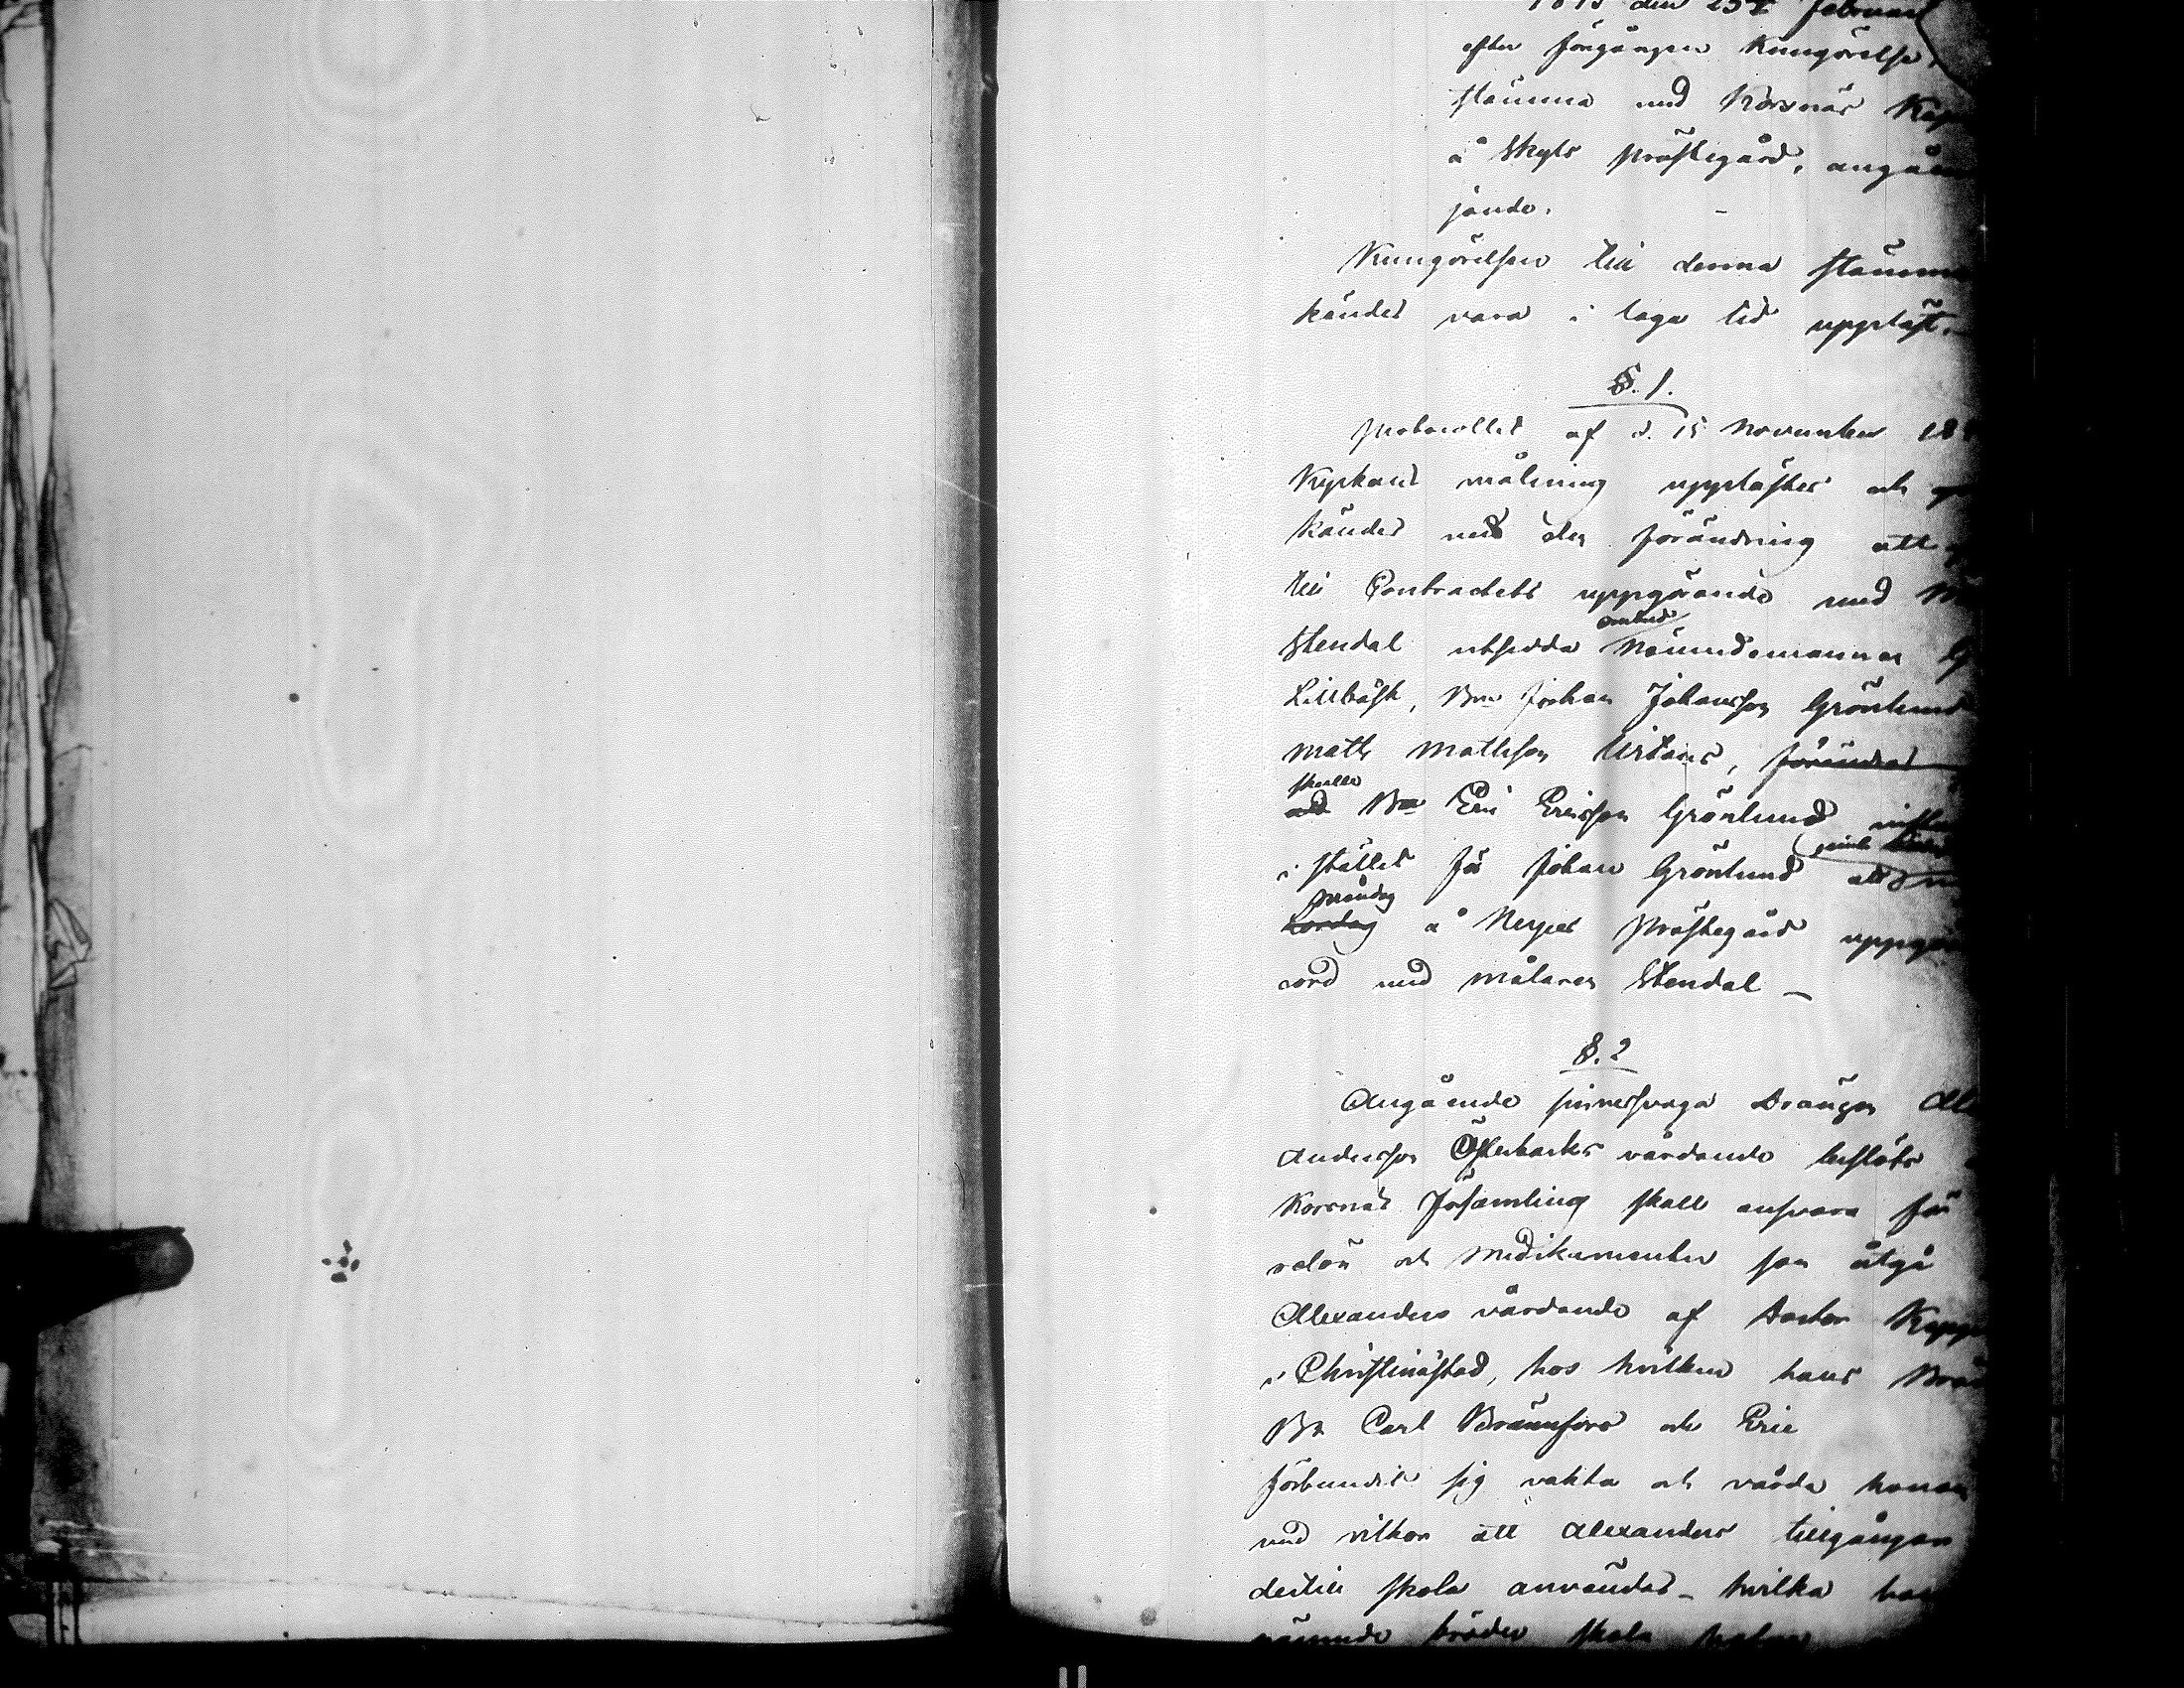 den 25 Februari
efter föregången Kungörelse,
stämma med Korsnäs
å Skyts prästegård, angåen
jande.
Kungörelsen till denna stämma
kändes vara i laga tid uppläst.
§. 1.
Protocollet af d. 15 November 18
Kyrkans målning upplästes och
kändes med den förändring att
till Contractets uppgörande med
ombud
Stendal utsedda Nämndemannen
Lillbåsk, Bn Johan Johansson Grönlund
Matts Mattsson Urtans, förändras
skulle
Bn Eric Ericsson Grönlund
i stället för Johan Grönlund att
måndag
Lördag å Nerpes Prästegård uppgöra
cord med målaren Stendal –
§. 2
Angående sinnessvaga Drängen Al
Andersson Österbacks vårdande beslöts
Korsnäs Församling skall ansvara för
och Medikamenter som åtgå
Alexanders vårdande af Doctor
i Christinästad, hos hvilken hans
Bn Carl Brännfors och Eric
förbundit sig vakta och vårda honom
med vilkor att Alexanders tillgångar
dertill skola användas – hvilka
nämnde bröder skola